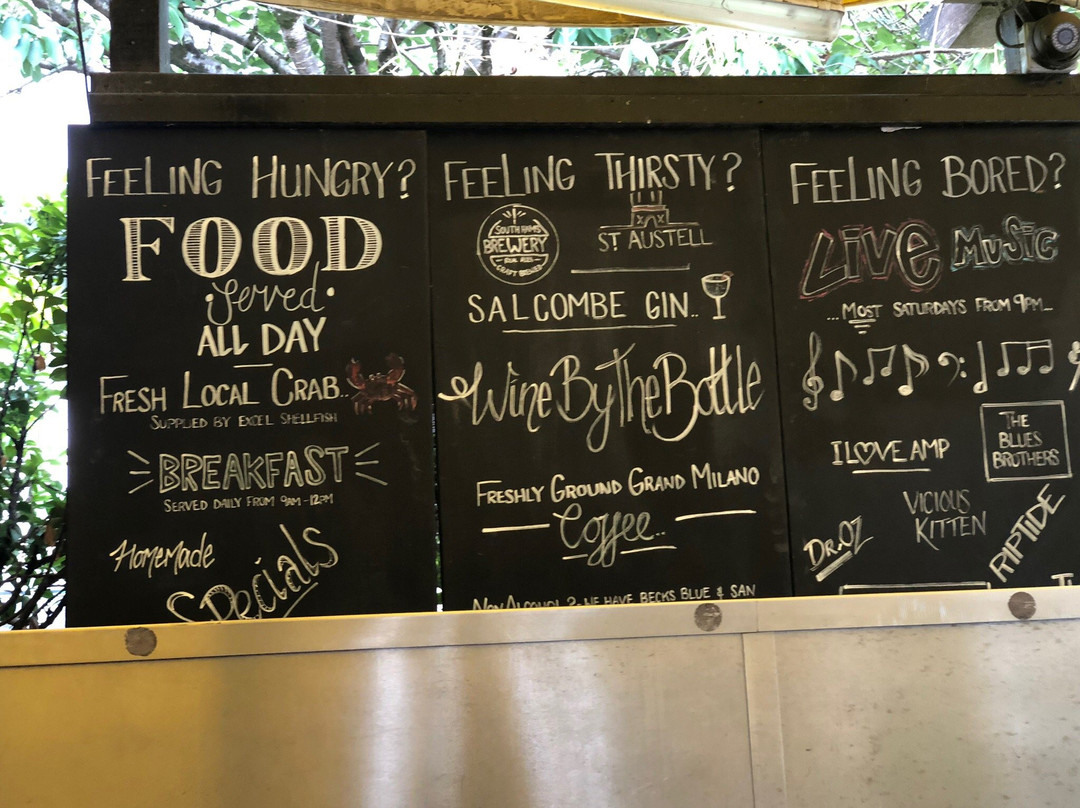 FEELING HUNGRY?
FOOD
served
ALL DAY
FRESH LOCAL CRAB..
SUPPLIED BY EXCEL SHELLFISH
BREAKFAST
SERVED DAILY FROM 9AM-12PM
HOMEMADE
SPECIALS
FEELING THIRSTY?
SOUTH HAMS
BREWERY
REAL ALES
CRAFT BREWED
ST AUSTELL
SALCOMBE GIN..
Wine By The Bottle
FRESHLY GROUND GRAND MILANO
Coffee..
NON ALCOHOL?-WE HAVE BECKS BLUE & SAN
FEELING BORED?
LIVE MUSIC
...MOST SATURDAYS FROM 9PM...
THE
BLUES
BROTHERS
I LOVE AMP
VICIOUS
KITTEN
DR.OZ
RIPTIDE